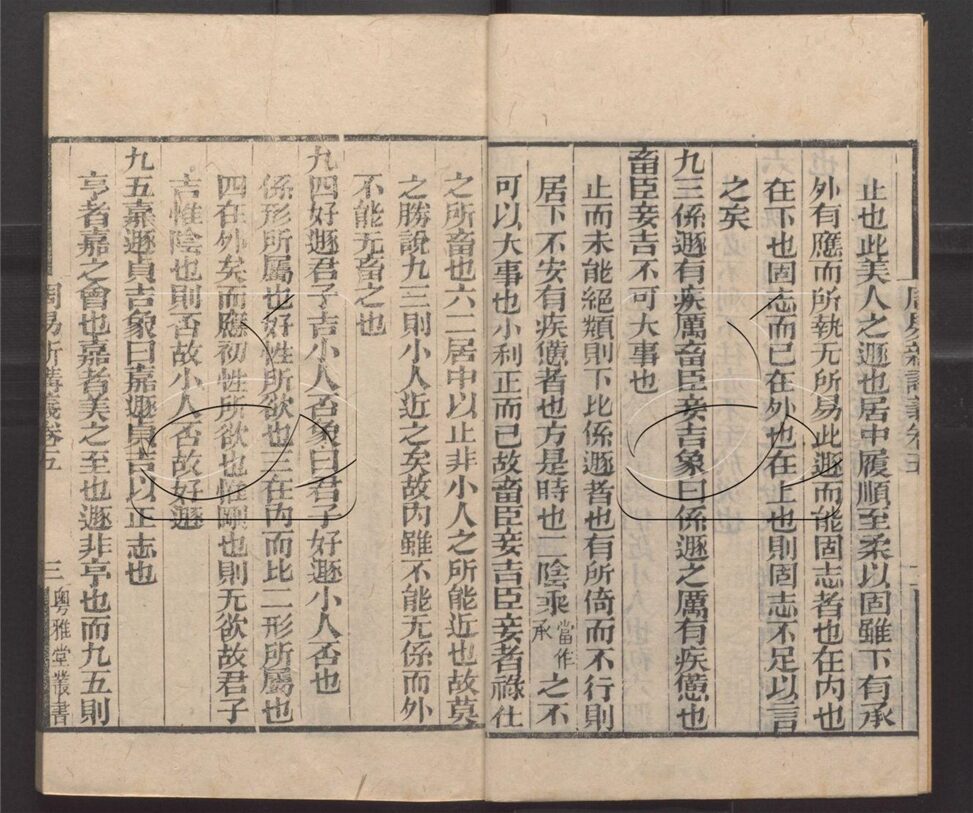 止也此美人之遯也居中履順至柔以固雖下有承
外有應而所執无所易此遯而能固志者也在内也
在下也固志而已在外也在上也則固志不足以言
之矣
九三係遯有疾厲畜臣妾吉象曰係遯之厲有疾憊也
畜臣妾吉不可大事也
止而未能絕類則下比係遯者也有所倚而不行則
居下不安有疾憊者也方是時也二陰乘當作承之不
可以大事也小利正而已故畜臣妾吉臣妾者祿仕
之所畜也六二居中以止非小人之所能近也故莫
之勝說九三則小人近之矣故内雖不能无係而外
不能无畜之也
九四好遯君子吉小人否象曰君子好遯小人否也
係形所屬也好性所欲也三在内而比二形所屬也
四在外矣而應初性所欲也惟剛也則无欲故君子
吉惟陰也則否故小人否故好遯
九五嘉遯貞吉象曰嘉遯貞吉以正志也
亨者嘉之會也嘉者美之至也遯非亨也而九五則
周易新講義卷五
三
粵雅堂叢書